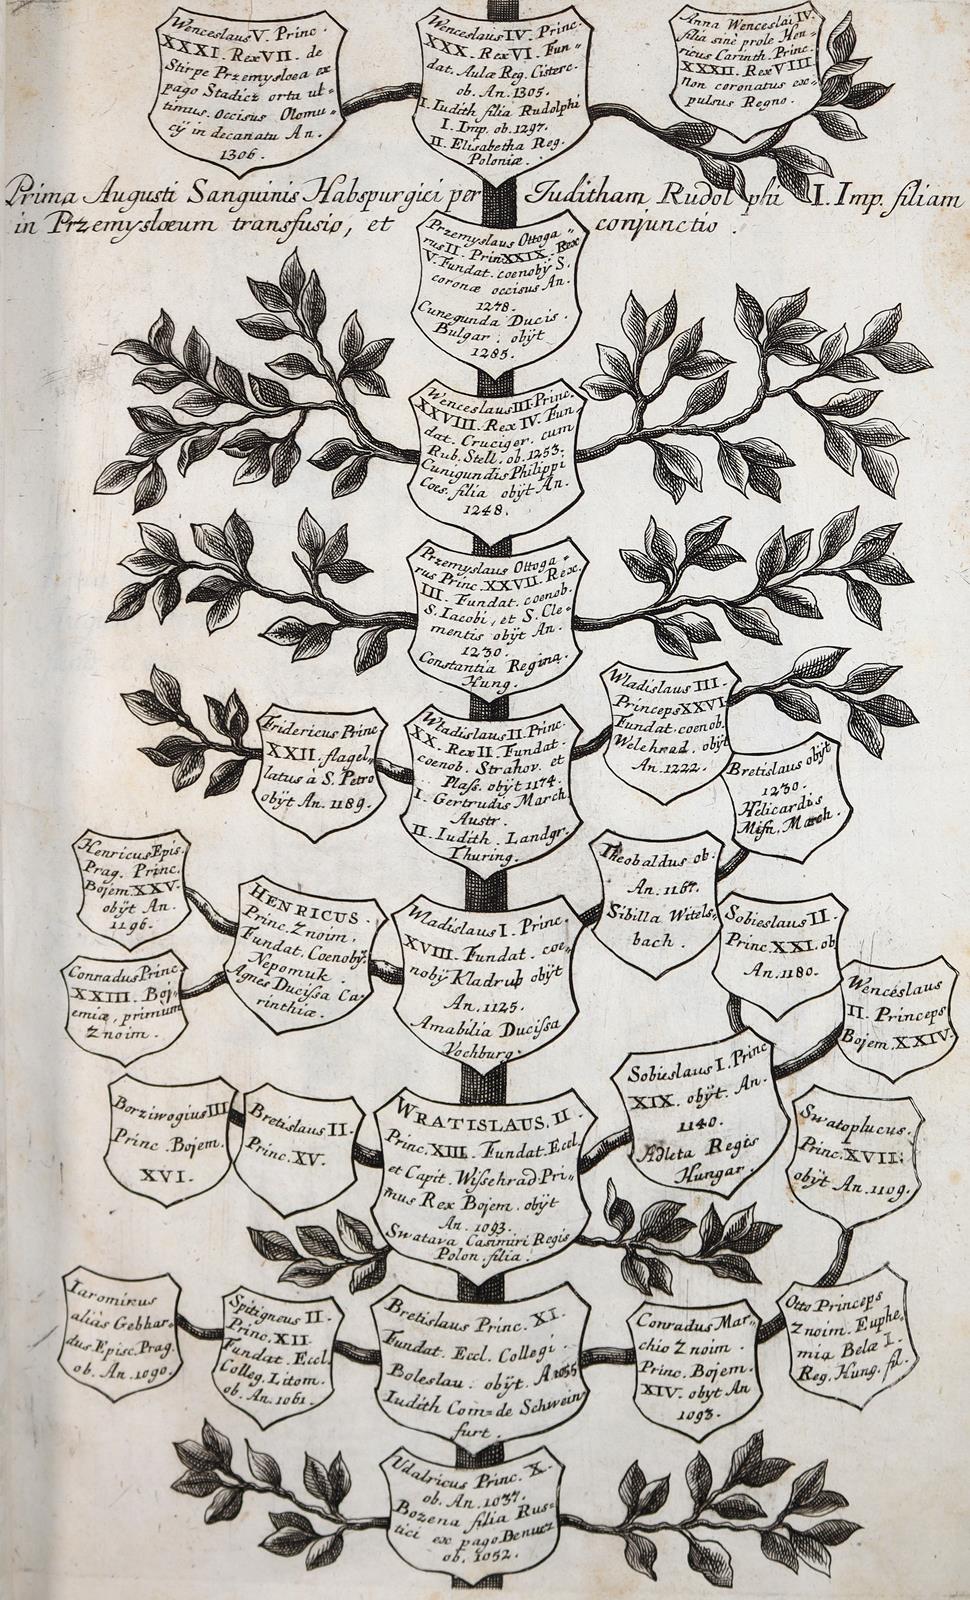 Wenceslaus V. Princ.
XXXI. Rex VII. de
Stirpe Przemysloea ex
pago Stadicz orta ul=
timus. occisus Olomu=
cÿ in decanatu An.
1306.
Wenceslaus IV. Princ.
XXX. Rex VI. Fun=
dat. Aulæ Reg. Cisterc.
ob. An. 1305.
I. Iudith filia Rudolphi
I. Imp. ob. 1297.
II. Elisabetha Reg.
Poloniæ.
Anna Wenceslai IV.
filia sine prole Hen=
ricus Carinth. Princ.
XXXII. Rex VIII
non coronatus ex=
pulsus Regno.
Prima Augusti Sanguinis Habspurgici per Juditham Rudolphi I. Imp. filiam
in Przemyslœum transfusio, et conjunctio.
Przemyslaus Ottoga=
rus II. Prin XXIX. Rex
V. Fundat. coenobÿ S.
coronæ occisus An.
1278.
Cunegunda Ducis.
Bulgar. obÿt
1285.
Wenceslaus III. Princ.
XXVIII. Rex IV. Fun=
dat. Cruciger. cum
Rub. Stell. ob. 1253.
Cunigundis Philippi
Coes. filia obÿt An.
1248.
Przemyslaus Ottoga=
rus Princ. XXVII. Rex.
III. Fundat. coenob.
S. Iacobi, et S. Cle=
mentis obÿt An.
1230.
Constantia Regina.
Hung.
Wladislaus III.
Princeps XXVI
Fundat. coenob.
Welehrad. obÿt
An. 1222.
Bretislaus obÿt
1230.
Helicardis
Misn. March.
Fridericus Princ
XXII. flagel=
latus à S. Petro
obÿt An. 1189.
Wladislaus II. Princ.
XX. Rex II. Fundat.
coenob. Strahov. et
Plass. obÿt 1174.
I. Gertrudis March.
Austr.
II. Iudith. Landgr.
Thuring.
Theobaldus ob.
An. 1167.
Sibilla Witels=
bach.
Henricus Epis.
Prag. Princ.
Bojem XXV.
obÿt An.
1196.
HENRICUS.
Princ. Znoim.
Fundat. Coenobÿ.
Nepomuk.
Agnes Ducissa Ca=
rinthiæ.
Wladislaus I. Princ.
XVIII. Fundat. coe=
nobÿ Kladrub obÿt
An. 1125.
Amabilia Ducissa
Vochburg.
Sobieslaus II.
Princ. XXI. ob
An. 1180.
Conradus Princ.
XXIII. Boj=
emiæ, primum
Znoim.
Wenceslaus
II. Princeps
Bojem. XXIV.
Borziwogius III
Princ. Bojem.
XVI.
Bretislaus II.
Princ. XV.
WRATISLAUS. II.
Princ. XIII. Fundat. Eccl.
et Capit. Wissehrad. Pri=
mus Rex Bojem. obÿt
An. 1093.
Swatava Casimiri Regis
Polon. filia.
Sobieslaus I. Princ
XIX. obÿt. An.
1140.
Adleta Regis
Hungar.
Swatoplucus.
Princ. XVII.
obÿt An. 1109.
Iaromirus
aliàs Gebhar=
dus Episc. Prag.
ob. An. 1090.
Spitigneus II.
Princ. XII
Fundat. Eccl.
Colleg. Litom.
ob. An. 1061.
Bretislaus Princ. XI.
Fundat. Eccl. Collegi.
Boleslau. obÿt. A 1055
Iudith Com=de Schwein
furt.
Conradus Mar=
chio Znoim.
Princ. Bojem.
XIV. obyt An
1093.
Otto Princeps
Znoim. Euphe=
mia Belæ I.
Reg. Hung. fil.
Udalricus Princ. X.
ob. An. 1037.
Bozena filia Rus=
tici ex pago Benucz
ob. 1052.